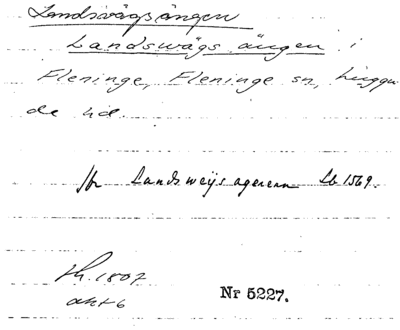 Landsvägsängen
Landswägs ängen i
Fleninge, Fleninge sn, Luggu
de hd.
Jfr Landsweÿs agerenn Lb 1569.
th. 1807
akt 6
Nr 5227.